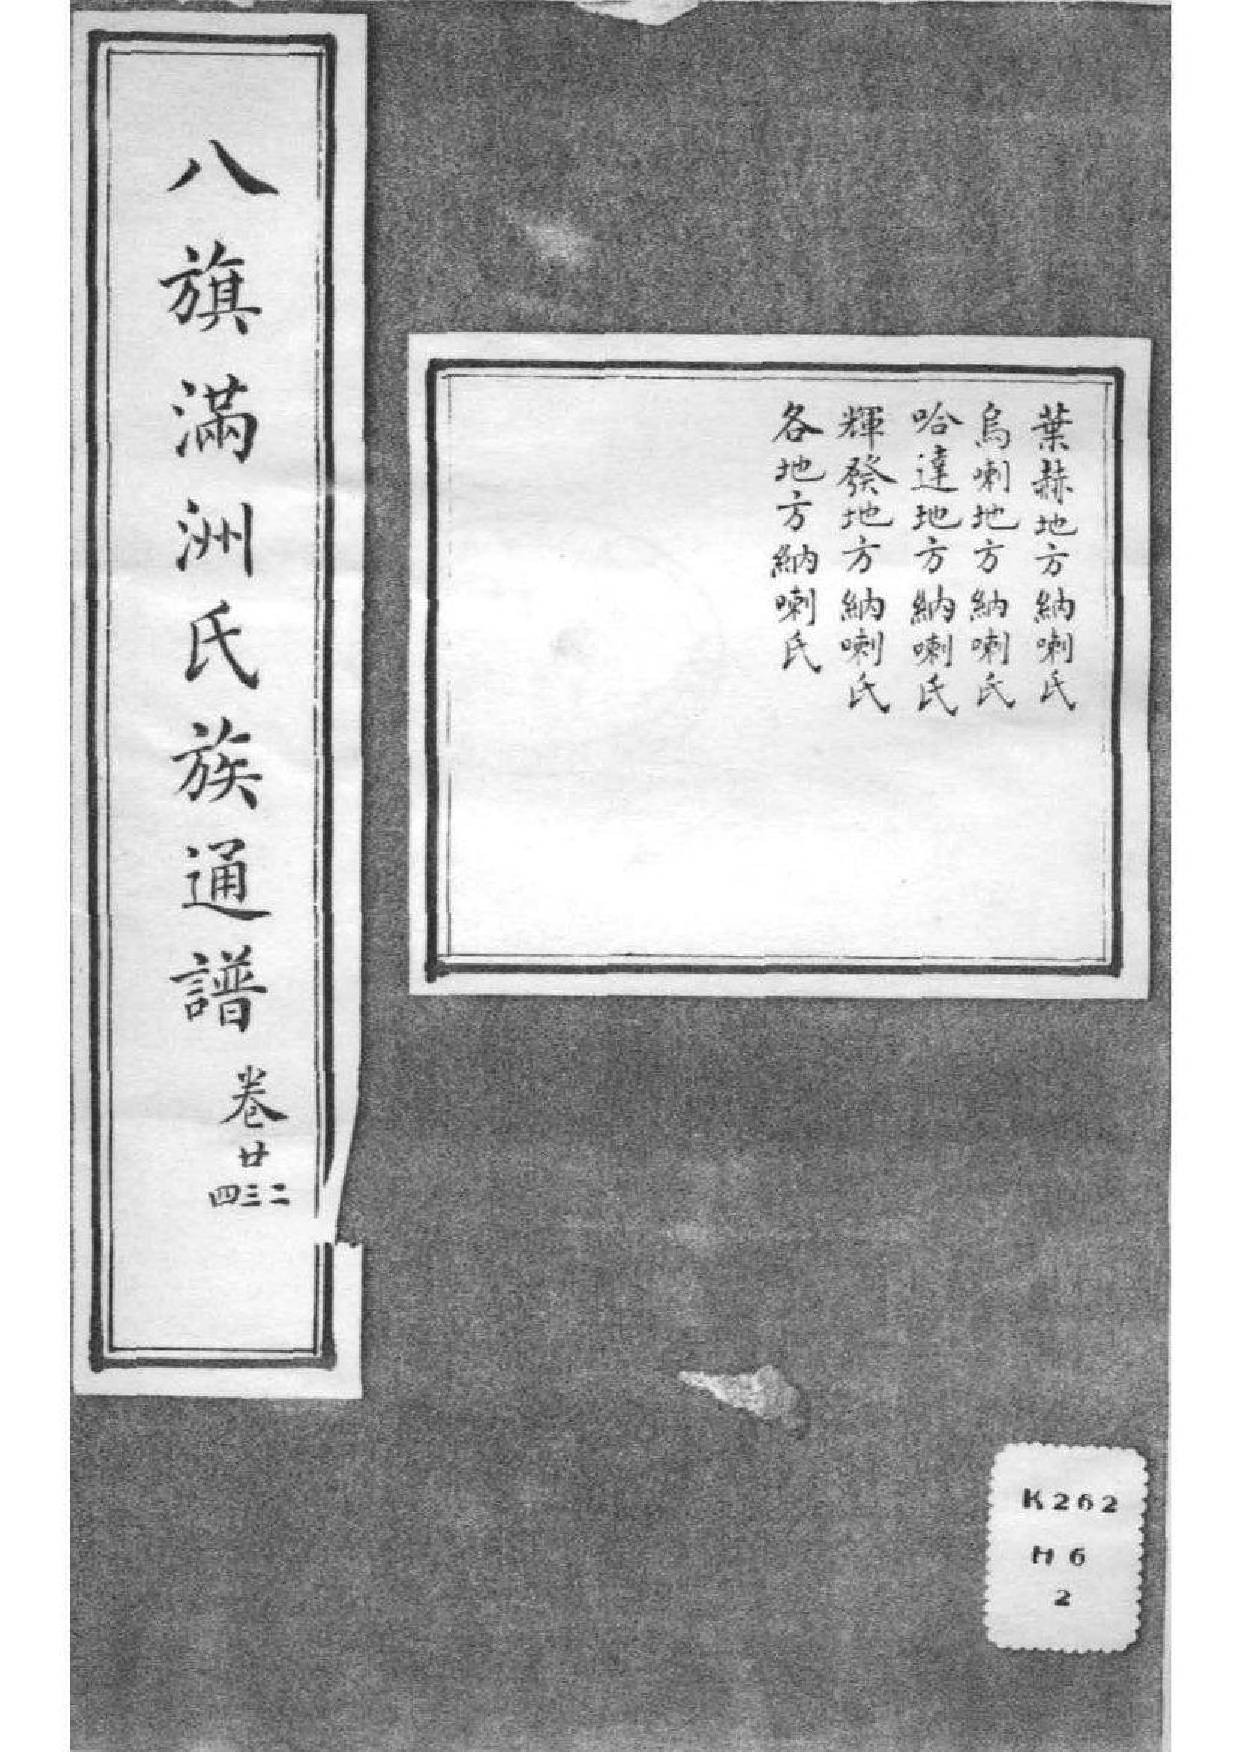 葉赫地方納喇氏
烏喇地方納喇氏
哈達地方納喇氏
輝發地方納喇氏
各地方納喇氏
八旗滿洲氏族通譜 卷廿二三四
K262
H6
2